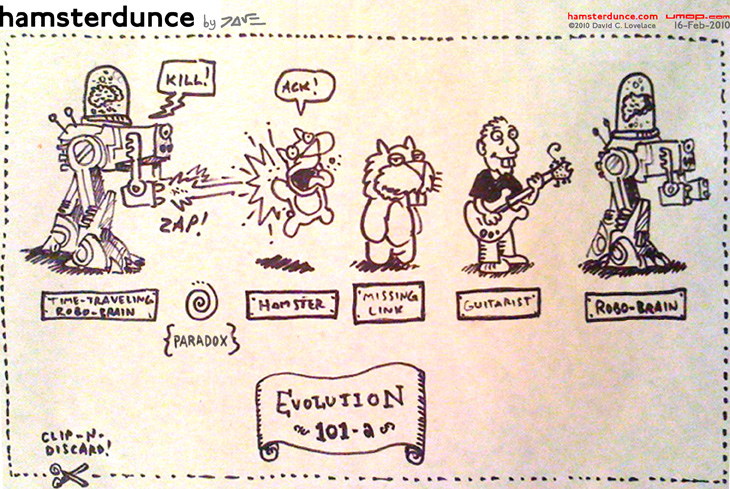 hamsterdunce by DAVE
hamsterdunce.com umop.com
©2010 David C. Lovelace 16-Feb-2010
KILL!
ACK!
ZAP!
TIME-TRAVELING
ROBO-BRAIN
{PARADOX}
HAMSTER
MISSING
LINK
GUITARIST
ROBO-BRAIN
EVOLUTION
101-a
CLIP-N-
DISCARD!